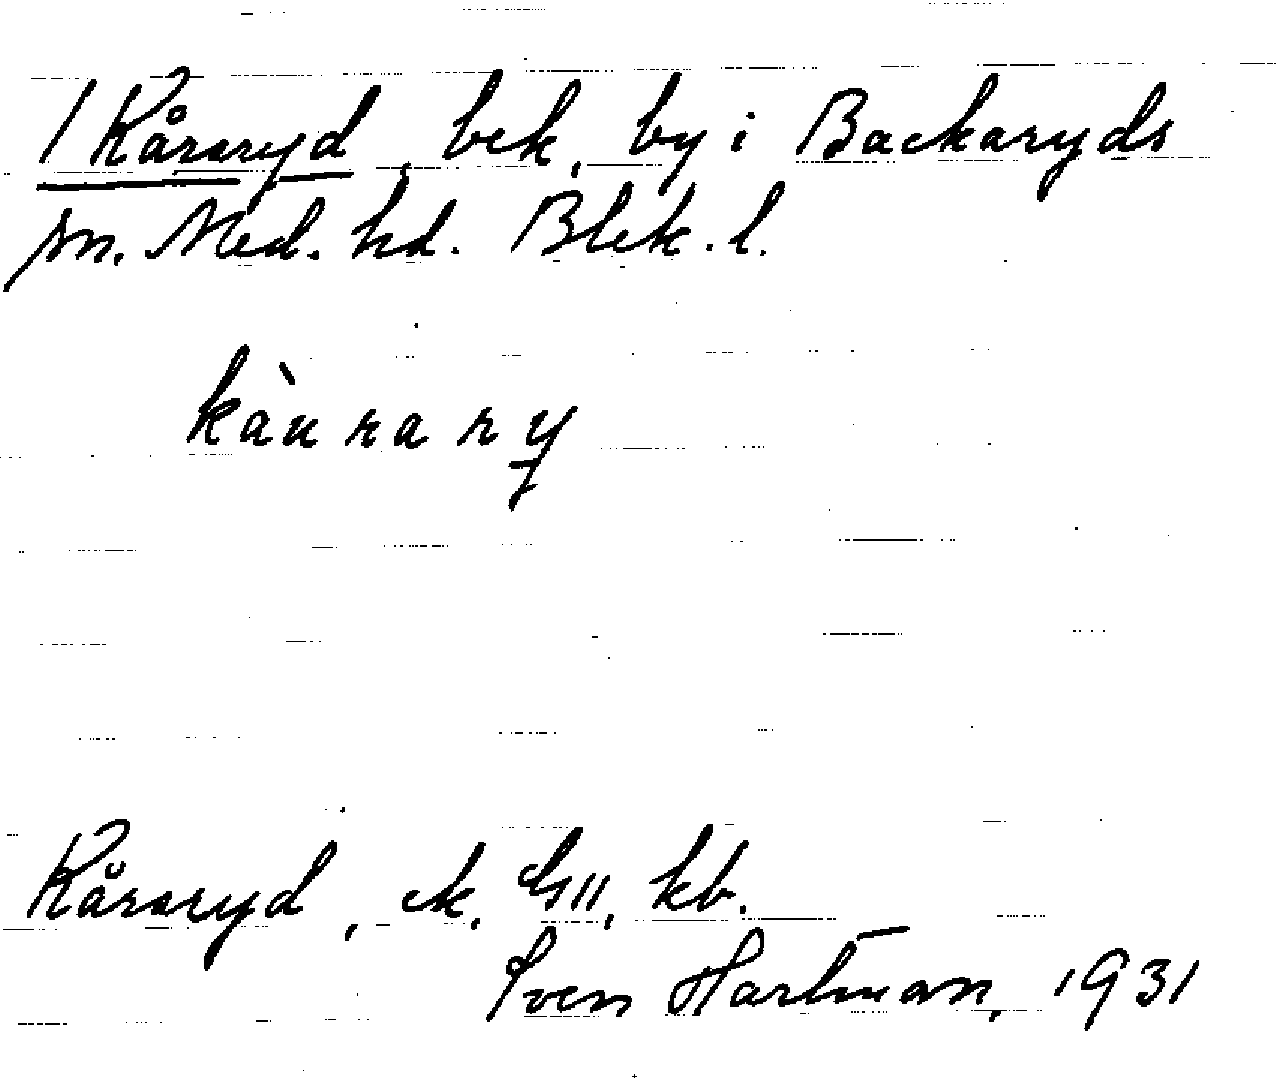 1 Kåraryd, bek. by i Backaryds
sn. Med. hd. Blek. l.
kàu ra ry
Kåraryd, ek. GII, kb.
Sven Hartman, 1931